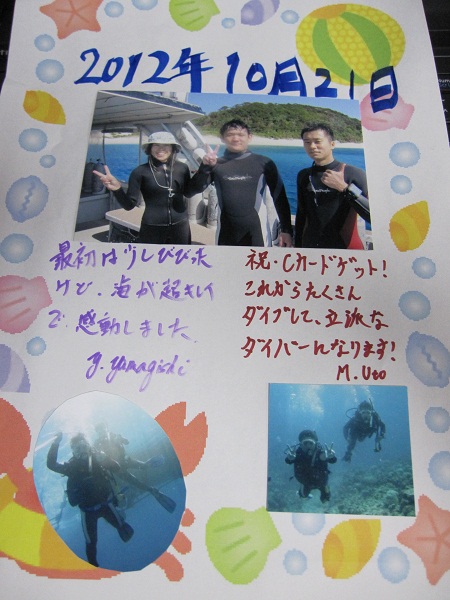 2012年10月21日
最初は少しびびった
けど、海が超きれい
で感動しました。
y.yamagishi
祝・Cカードゲット!
これからたくさん
ダイブして、立派な
ダイバーになります!
M.Uto